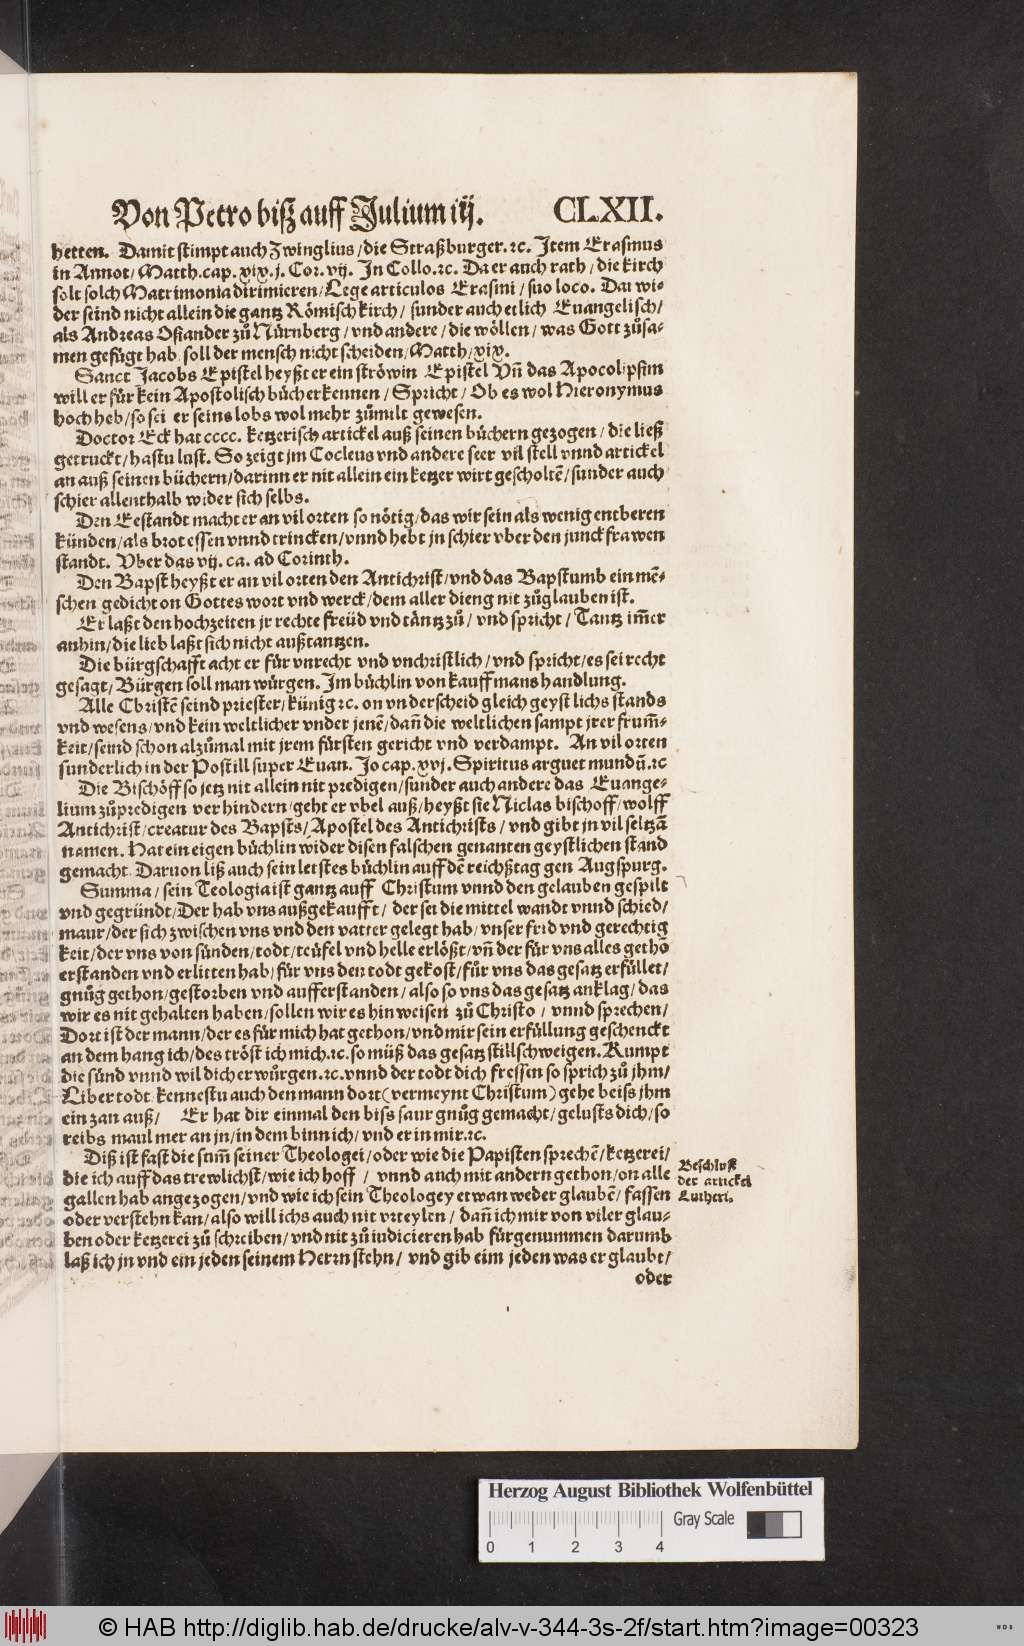 Von Petro biß auff Julium iij. CLXII.
hetten. Damit stimpt auch Zwinglius / die Straßburger. ꝛc. Item Erasmus
in Annot / Matth. cap. xix. j. Cor. vij. In Collo. ꝛc. Da er auch rath / die kirch
solt solch Matrimonia dirimieren / Lege articulos Erasini / suo loco. Dar wi-
der seind nicht allein die gantz Römisch kirch / sunder auch etlich Euangelisch /
als Andreas Osiander zů Nürnberg / vnd andere / die wöllen / was Gott zůsa-
men gefügt hab / soll der mensch nicht scheiden / Matth / xix.
Sanct Jacobs Epistel heyßt er ein ströwin Epistel Vñ das Apocolipsim
will er für kein Apostolisch bücher kennen / Spricht / Ob es wol Hieronymus
hoch heb / so sei er seins lobs wol mehr zůmilt gewesen.
Doctor Eck hat cccc. ketzerisch artickel auß seinen büchern gezogen / die ließ
getruckt / hastu lust. So zeigt jm Cocleus vnd andere seer vil stell vnnd artickel
an auß seinen büchern / darinn er nit allein ein ketzer wirt gescholtẽ / sunder auch
schier allenthalb wider sich selbs.
Den Eestandt macht er an vil orten so nötig / das wir sein als wenig entberen
künden / als brot essen vnnd trincken / vnnd hebt jn schier vber den junckfrawen
standt. Vber das vij. ca. ad Corinth.
Den Bapst heyßt er an vil orten den Antichrist / vnd das Bapstumb ein mẽ-
schen gedicht on Gottes wort vnd werck / dem aller dieng nit zůglauben ist.
Er laßt den hochzeiten jr rechte freüd vnd täntz zů / vnd spricht / Tantz im̃er
anhin / die lieb laßt sich nicht auß tantzen.
Die bürgschafft acht er für vnrecht vnd vnchristlich / vnd spricht / es sei recht
gesagt / Bürgen soll man würgen. Im büchlin von kauffmans handlung.
Alle Christẽ seind priester / künig ꝛc. on vnderscheid gleich geystlichs stands
vnd wesens / vnd kein weltlicher vnder jenẽ / dañ die weltlichen sampt jrer frum̃-
keit / seind schon alzůmal mit jrem fürsten gericht vnd verdampt. An vil orten
sunderlich in der Postill super Euan. Jo cap. xvj. Spiritus arguet mundũ. ꝛc
Die Bischöff so jetz nit allein nit predigen / sunder auch andere das Euange-
lium zůpredigen verhindern / geht er vbel auß / heyßt sie Niclas bischoff / wolff
Antichrist / creatur des Bapsts / Apostel des Antichrists / vnd gibt jn vil seltzã
namen. Hat ein eigen büchlin wider disen falschen genanten geystlichen stand
gemacht. Daruon liß auch sein letstes büchlin auff dẽ reichßtag gen Augspurg.
Summa / sein Teologia ist gantz auff Christum vnnd den gelauben gespilt
vnd gegründt / Der hab vns außgekaufft / der sei die mittel wandt vnnd schied /
maur / der sich zwischen vns vnd den vatter gelegt hab / vnser frid vnd gerechtig
keit / der vns von sünden / todt / teüfel vnd helle erlößt / vñ der für vns alles gethõ
erstanden vnd erlitten hab / für vns den todt gekost / für vns das gesatz erfüllet /
gnůg gethon / gestorben vnd aufferstanden / also so vns das gesatz anklag / das
wir es nit gehalten haben / sollen wir es hin weisen zů Christo / vnnd sprechen /
Dort ist der mann / der es für mich hat gethon / vnd mir sein erfüllung geschenckt
an dem hang ich / des tröst ich mich. ꝛc. so můß das gesatz stillschweigen. Kumpt
die sünd vnnd wil dich erwürgen. ꝛc. vnnd der todt dich fressen so sprich zů jhm /
Liber todt / kennestu auch den mann dort (vermeynt Christum) gehe beiss jhm
ein zan auß / Er hat dir einmal den biss saur gnůg gemacht / gelusts dich / so
reibs maul mer an jn / in dem binn ich / vnd er in mir. ꝛc.
Diß ist fast die sum̃ seiner Theologei / oder wie die Papisten sprechẽ / ketzerei /
die ich auff das trewlichst / wie ich hoff / vnnd auch mit andern gethon / on alle
gallen hab angezogen / vnd wie ich sein Theologey etwan weder glaubẽ / fassen
oder verstehn kan / also will ichs auch nit vrteylen / dañ ich mir von viler glau-
ben oder ketzerei zů schreiben / vnd nit zů iudicieren hab fürgenummen darumb
laß ich jn vnd ein jeden seinem Herrn stehn / vnd gib eim jeden was er glaubt /
oder
Beschluß
der artickel
Lutheri.
Herzog August Bibliothek Wolfenbüttel
Gray Scale
0 1 2 3 4
© HAB http://diglib.hab.de/drucke/alv-v-344-3s-2f/start.htm?image=00323